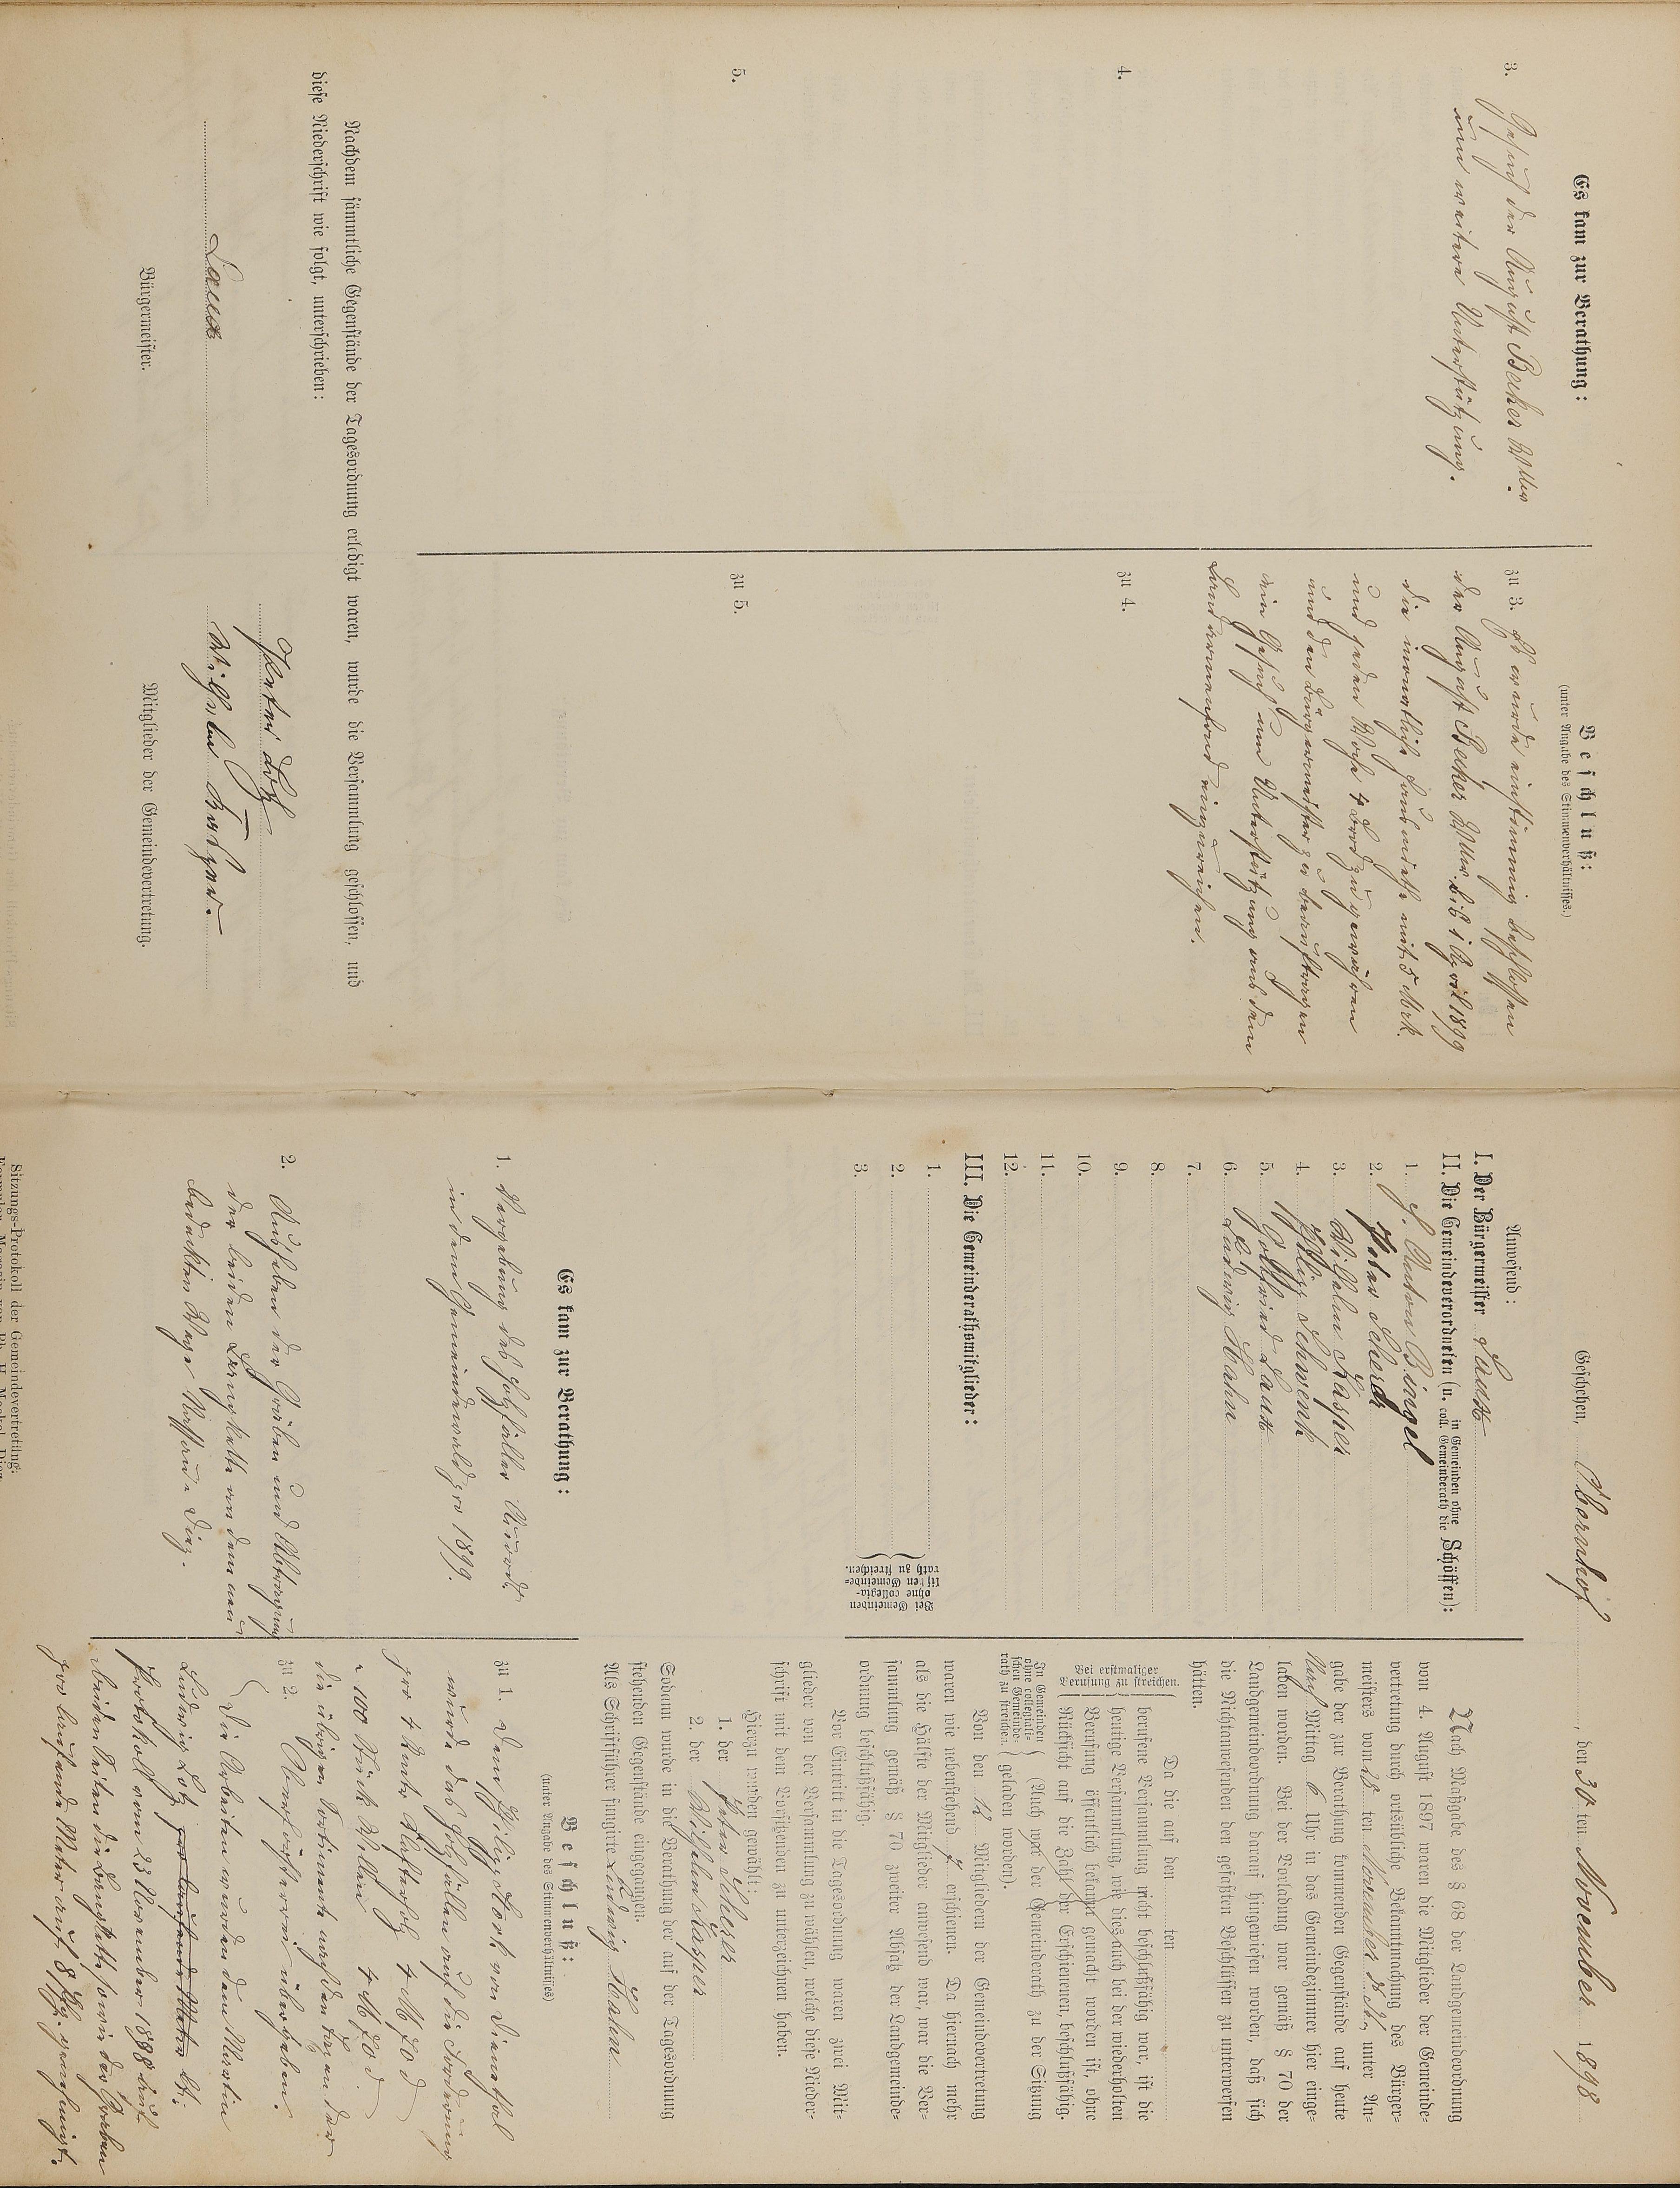 Geschehen, Obernhof, den 30 ten November 1898
Anwesend:
I. Der Bürgermeister Laux
II. Die Gemeindeverordneten (u. in Gemeinden ohne coll. Gemeinderath die Schöffen):
1. Anton Bingel
2. Peter Scherer
3. Wilhelm Kasper
4. Philip Schwenk
5. Gottfried Laux
6. Ludwig Hahn
7.
8.
9.
10.
11.
12.
III. Die Gemeinderathsmitglieder:
1.
2.
3.
Bei Gemeinden
ohne collegia-
lischen Gemeinde-
rath zu streichen.
Nach Maßgabe des § 68 der Landgemeindeordnung
vom 4. August 1897 waren die Mitglieder der Gemeinde-
vertretung durch ortsübliche Bekanntmachung des Bürger-
meisters vom 28 ten November d. J., unter An-
gabe der zur Berathung kommenden Gegenstände auf heute
Nach Mittag 6 Uhr in das Gemeindezimmer hier einge-
laden worden. Bei der Vorladung war gemäß § 70 der
Landgemeindeordnung darauf hingewiesen worden, daß sich
die Nichtanwesenden den gefaßten Beschlüssen zu unterwerfen
hätten.
Bei erstmaliger
Berufung zu streichen.
Da die auf den ten
berufene Versammlung nicht beschlußfähig war, ist die
heutige Versammlung, wie dies auch bei der wiederholten
Berufung öffentlich bekannt gemacht worden ist, ohne
Rücksicht auf die Zahl der Erschienenen, beschlußfähig.
In Gemeinden
ohne collegiali-
schen Gemeinde-
rath zu streichen.
(Auch war der Gemeinderath zu der Sitzung
geladen worden).
Von den 12 Mitgliedern der Gemeindevertretung
waren wie nebenstehend 7 erschienen. Da hiernach mehr
als die Hälfte der Mitglieder anwesend war, war die Ver-
sammlung gemäß § 70 zweiter Absatz der Landgemeinde-
ordnung beschlußfähig.
Vor Eintritt in die Tagesordnung waren zwei Mit-
glieder von der Versammlung zu wählen, welche diese Nieder-
schrift mit dem Vorsitzenden zu unterzeichnen haben.
Hierzu wurden gewählt:
1. der Peter Scherer
2. der Wilhelm Kasper
Sodann wurde in die Berathung der auf der Tagesordnung
stehenden Gegenstände eingegangen.
Als Schriftführer fungirte Ludwig Hahn
Es kam zur Berathung:
1. Vergebung des Holzfäller Accords
in dem Gemeindewald pro 1899.
2. Ausheben der Gräben und Abtragung
der beiden Bankette an dem neu
bedeckten Wege Nassau-Diez.
Beschluß:
(unter Angabe des Stimmenverhältnisses)
zu 1. Dem Philip Stork von Dienethal
wurde das Holzfällen auf die Forderung
pro 4 Meter Klafterholz 4 M 70 d
" 100 Stück Wellen 4 M 70 d.
die übrigen Sortimente nach den Sätzen der
Oberförsterei übergeben.
zu 2. Die Arbeiten wurden dem Martin
Ludwig Lotz pro laufende Meter lt.
Protokoll vom 23 November 1898 das
beiden Seiten die Bankette sowie der Graben
pro laufende Meter auf 8 Pfg. genehmigt.
Sitzungs-Protokoll der Gemeindevertretung.
Es kam zur Berathung:
3. Gesuch der August Becker Wtw.
um weitere Unterstützung.
4.
5.
Beschluß:
(unter Angabe des Stimmenverhältnisses.)
zu 3. Es wurde einstimmig beschlossen
der August Becker Wtw. bis 1 April 1899
die monatliche Hausmiethe mit 5 Mrk.
und jeden Woche 4 Brod zu gewähren
und den Bürgermeister zu beauftragen
ein Gesuch um Unterstützung aus dem
Landarmenfond einzureichen.
zu 4.
zu 5.
Nachdem sämmtliche Gegenstände der Tagesordnung erledigt waren, wurde die Versammlung geschlossen, und
diese Niederschrift wie folgt, unterschrieben:
Laux
Bürgermeister.
Peter
Wilhelm
Mitglieder der Gemeindevertretung.